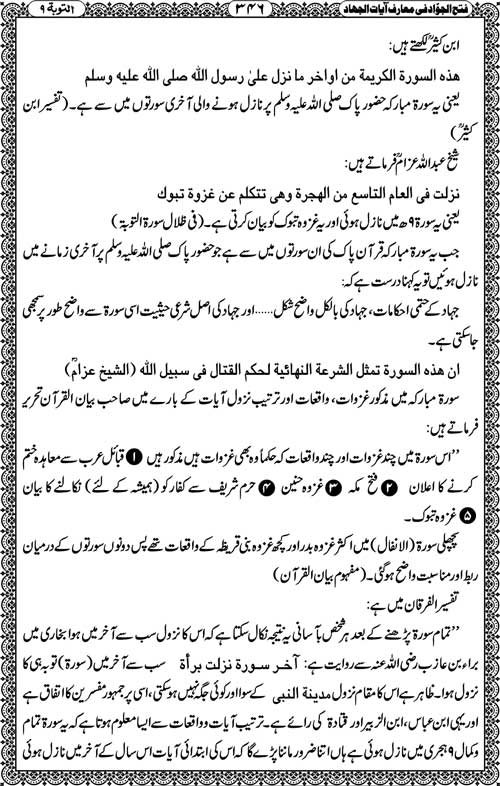 فتح الجوّاد فی معارف آیات الجهاد ۳۴۶ التوبة ۹
ابن کثیرؒ لکھتے ہیں:
هذه السورة الكريمة من اواخر ما نزل علىٰ رسول الله صلى الله عليه وسلم
یعنی یہ سورۃ مبارکہ حضور پاک صلی اللہ علیہ وسلم پر نازل ہونے والی آخری سورتوں میں سے ہے۔ (تفسیر ابن
کثیرؒ)
شیخ عبداللہ عزامؒ فرماتے ہیں:
نزلت فى العام التاسع من الهجرة وهى تتكلم عن غزوة تبوك
یعنی یہ سورۃ ۹ھ میں نازل ہوئی اور یہ غزوہ تبوک کو بیان کرتی ہے۔ (فی ظلال سورۃ التوبۃ)
جب یہ سورۃ مبارکہ قرآن پاک کی ان سورتوں میں سے ہے جو حضور پاک صلی اللہ علیہ وسلم پر آخری زمانے میں
نازل ہوئیں تو یہ کہنا درست ہے کہ:
جہاد کے حتمی احکامات، جہاد کی بالکل واضح شکل......اور جہاد کی اصل شرعی حیثیت اسی سورۃ سے واضح طور پر سمجھی
جاسکتی ہے۔
ان هذه السورة تمثل الشرعة النهائية لحكم القتال فى سبيل الله (الشيخ عزامؒ)
سورۃ مبارکہ میں مذکور غزوات، واقعات اور ترتیب نزول آیات کے بارے میں صاحب بیان القرآن تحریر
فرماتے ہیں:
’’اس سورۃ میں چند غزوات اور چند واقعات کہ حکماً وہ بھی غزوات ہیں مذکور ہیں ❶ قبائل عرب سے معاہدہ ختم
کرنے کا اعلان ❷ فتح مکہ ❸ غزوہ حنین ❹ حرم شریف سے کفار کو (ہمیشہ کے لئے) نکالنے کا بیان
❺ غزوہ تبوک۔
پچھلی سورۃ (الانفال) میں اکثر غزوہ بدر اور کچھ غزوہ بنی قریظہ کے واقعات تھے پس دونوں سورتوں کے درمیان
ربط اور مناسبت واضح ہوگئی۔ (مفہوم بیان القرآن)
تفسیر الفرقان میں ہے:
’’تمام سورۃ پڑھنے کے بعد ہر شخص بآسانی یہ نتیجہ نکال سکتا ہے کہ اس کا نزول سب سے آخر میں ہوا بخاری میں
براء بن عازب رضی اللہ عنہ سے روایت ہے: آخر سورة نزلت برأة سب سے آخر میں (سورۃ) توبہ ہی کا
نزول ہوا۔ ظاہر ہے اس کا مقام نزول مدينة النبی کے سوا اور کوئی جگہ نہیں ہوسکتی، اسی پر جمہور مفسرین کا اتفاق ہے
اور یہی ابن عباس، ابن الزبیر اور قتادۃ کی رائے ہے۔ ترتیب آیات و واقعات سے ایسا معلوم ہوتا ہے کہ یہ سورۃ تمام
و کمال ۹ ہجری میں نازل ہوئی ہے ہاں اتنا ضرور ماننا پڑے گا کہ اس کی ابتدائی آیات اس سال کے آخر میں نازل ہوئی